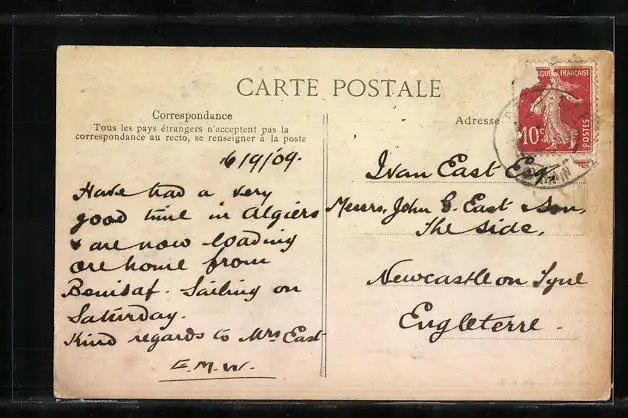 CARTE POSTALE
Correspondance
Tous les pays étrangers n'acceptent pas la
correspondance au recto, se renseigner à la poste
6/9/09.
Have had a very
good time in Algiers
& are now loading
ore home from
Benisaf. Sailing on
Saturday.
Kind regards to Mrs East
E.M.W.
Adresse
Ivan East Esq.
Messrs. John G. East & Son,
The Side,
Newcastle on Tyne
Engleterre.
FRANÇAISE
10c
POSTES